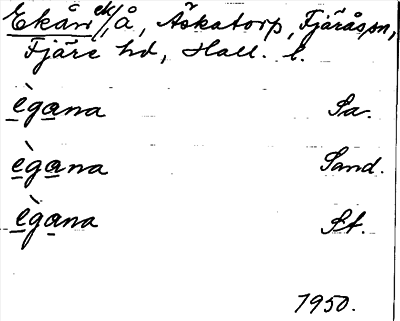 Ekån ek/, å, Äskatorp, Fjärås sn,
Fjäre hd, Hall. l.
ègana Sa.
ègana Sand.
ègana St.
1950.